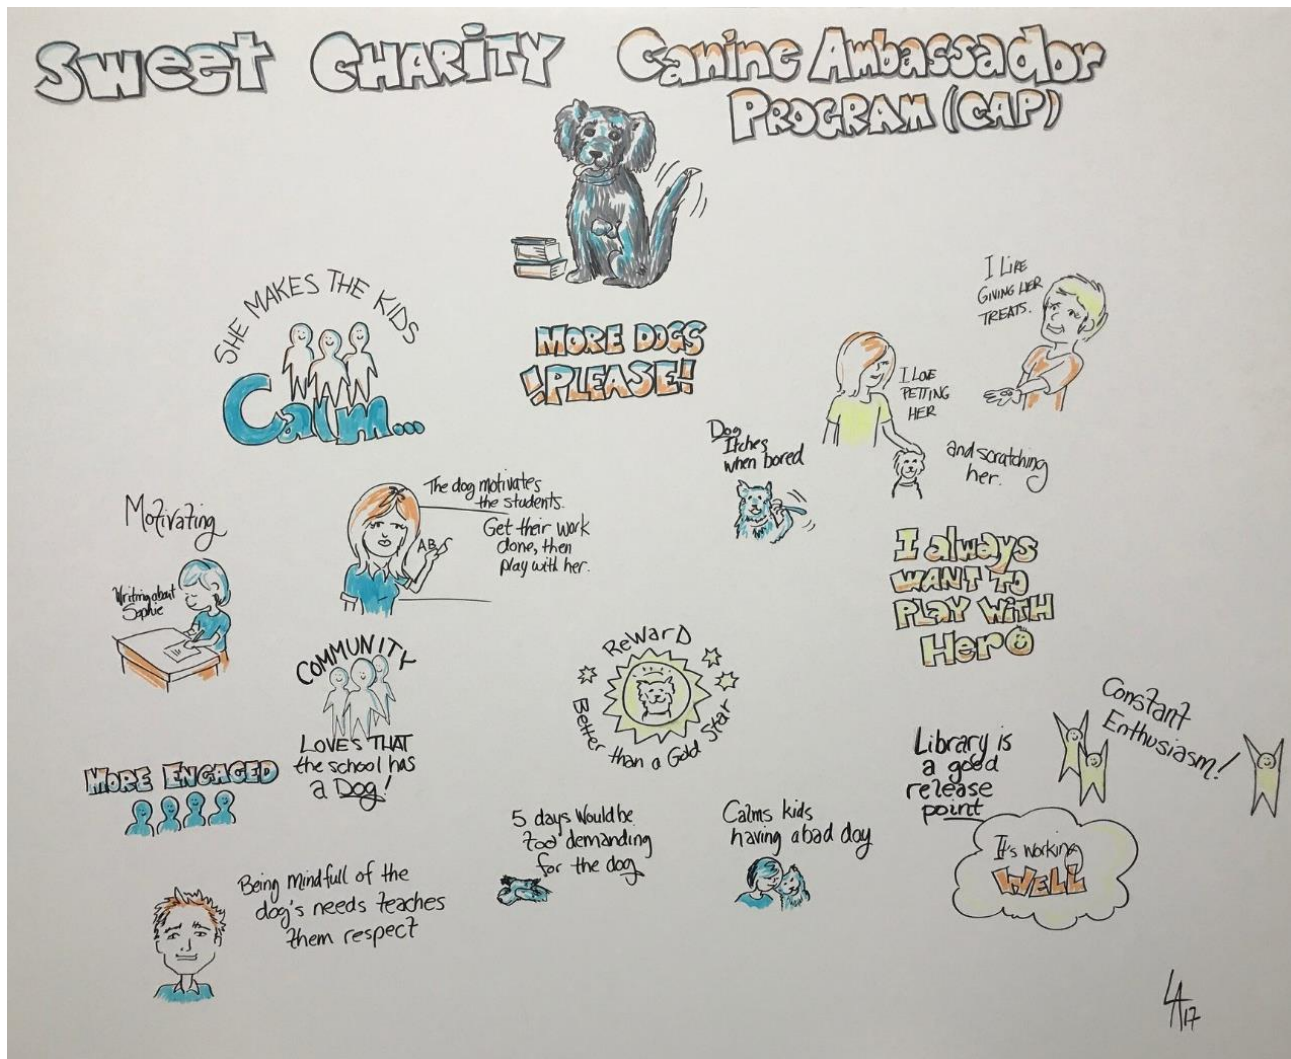 SWEET CHARITY
Canine Ambassador
PROGRAM (CAP)
SHE MAKES THE KIDS
Calm...
MORE DOGS
PLEASE!
I LIKE
GIVING HER
TREATS.
I LOVE
PETTING
HER
and scratching
her.
Dog
Itches
when bored
Motivating
Writing about
Sophie
The dog motivates
the students.
Get their work
done, then
play with her.
ABC
I always
WANT TO
PLAY WITH
HerO
COMMUNITY
LOVES THAT
the school has
a Dog!
ReWarD
Better than a Gold Star
Constant
Enthusiasm!
Library is
a good
release
point
MORE ENGAGED
5 days Would be
too demanding
for the dog
Calms kids
having a bad day
It's working
WELL
Being mindfull of the
dog's needs teaches
them respect
LA17